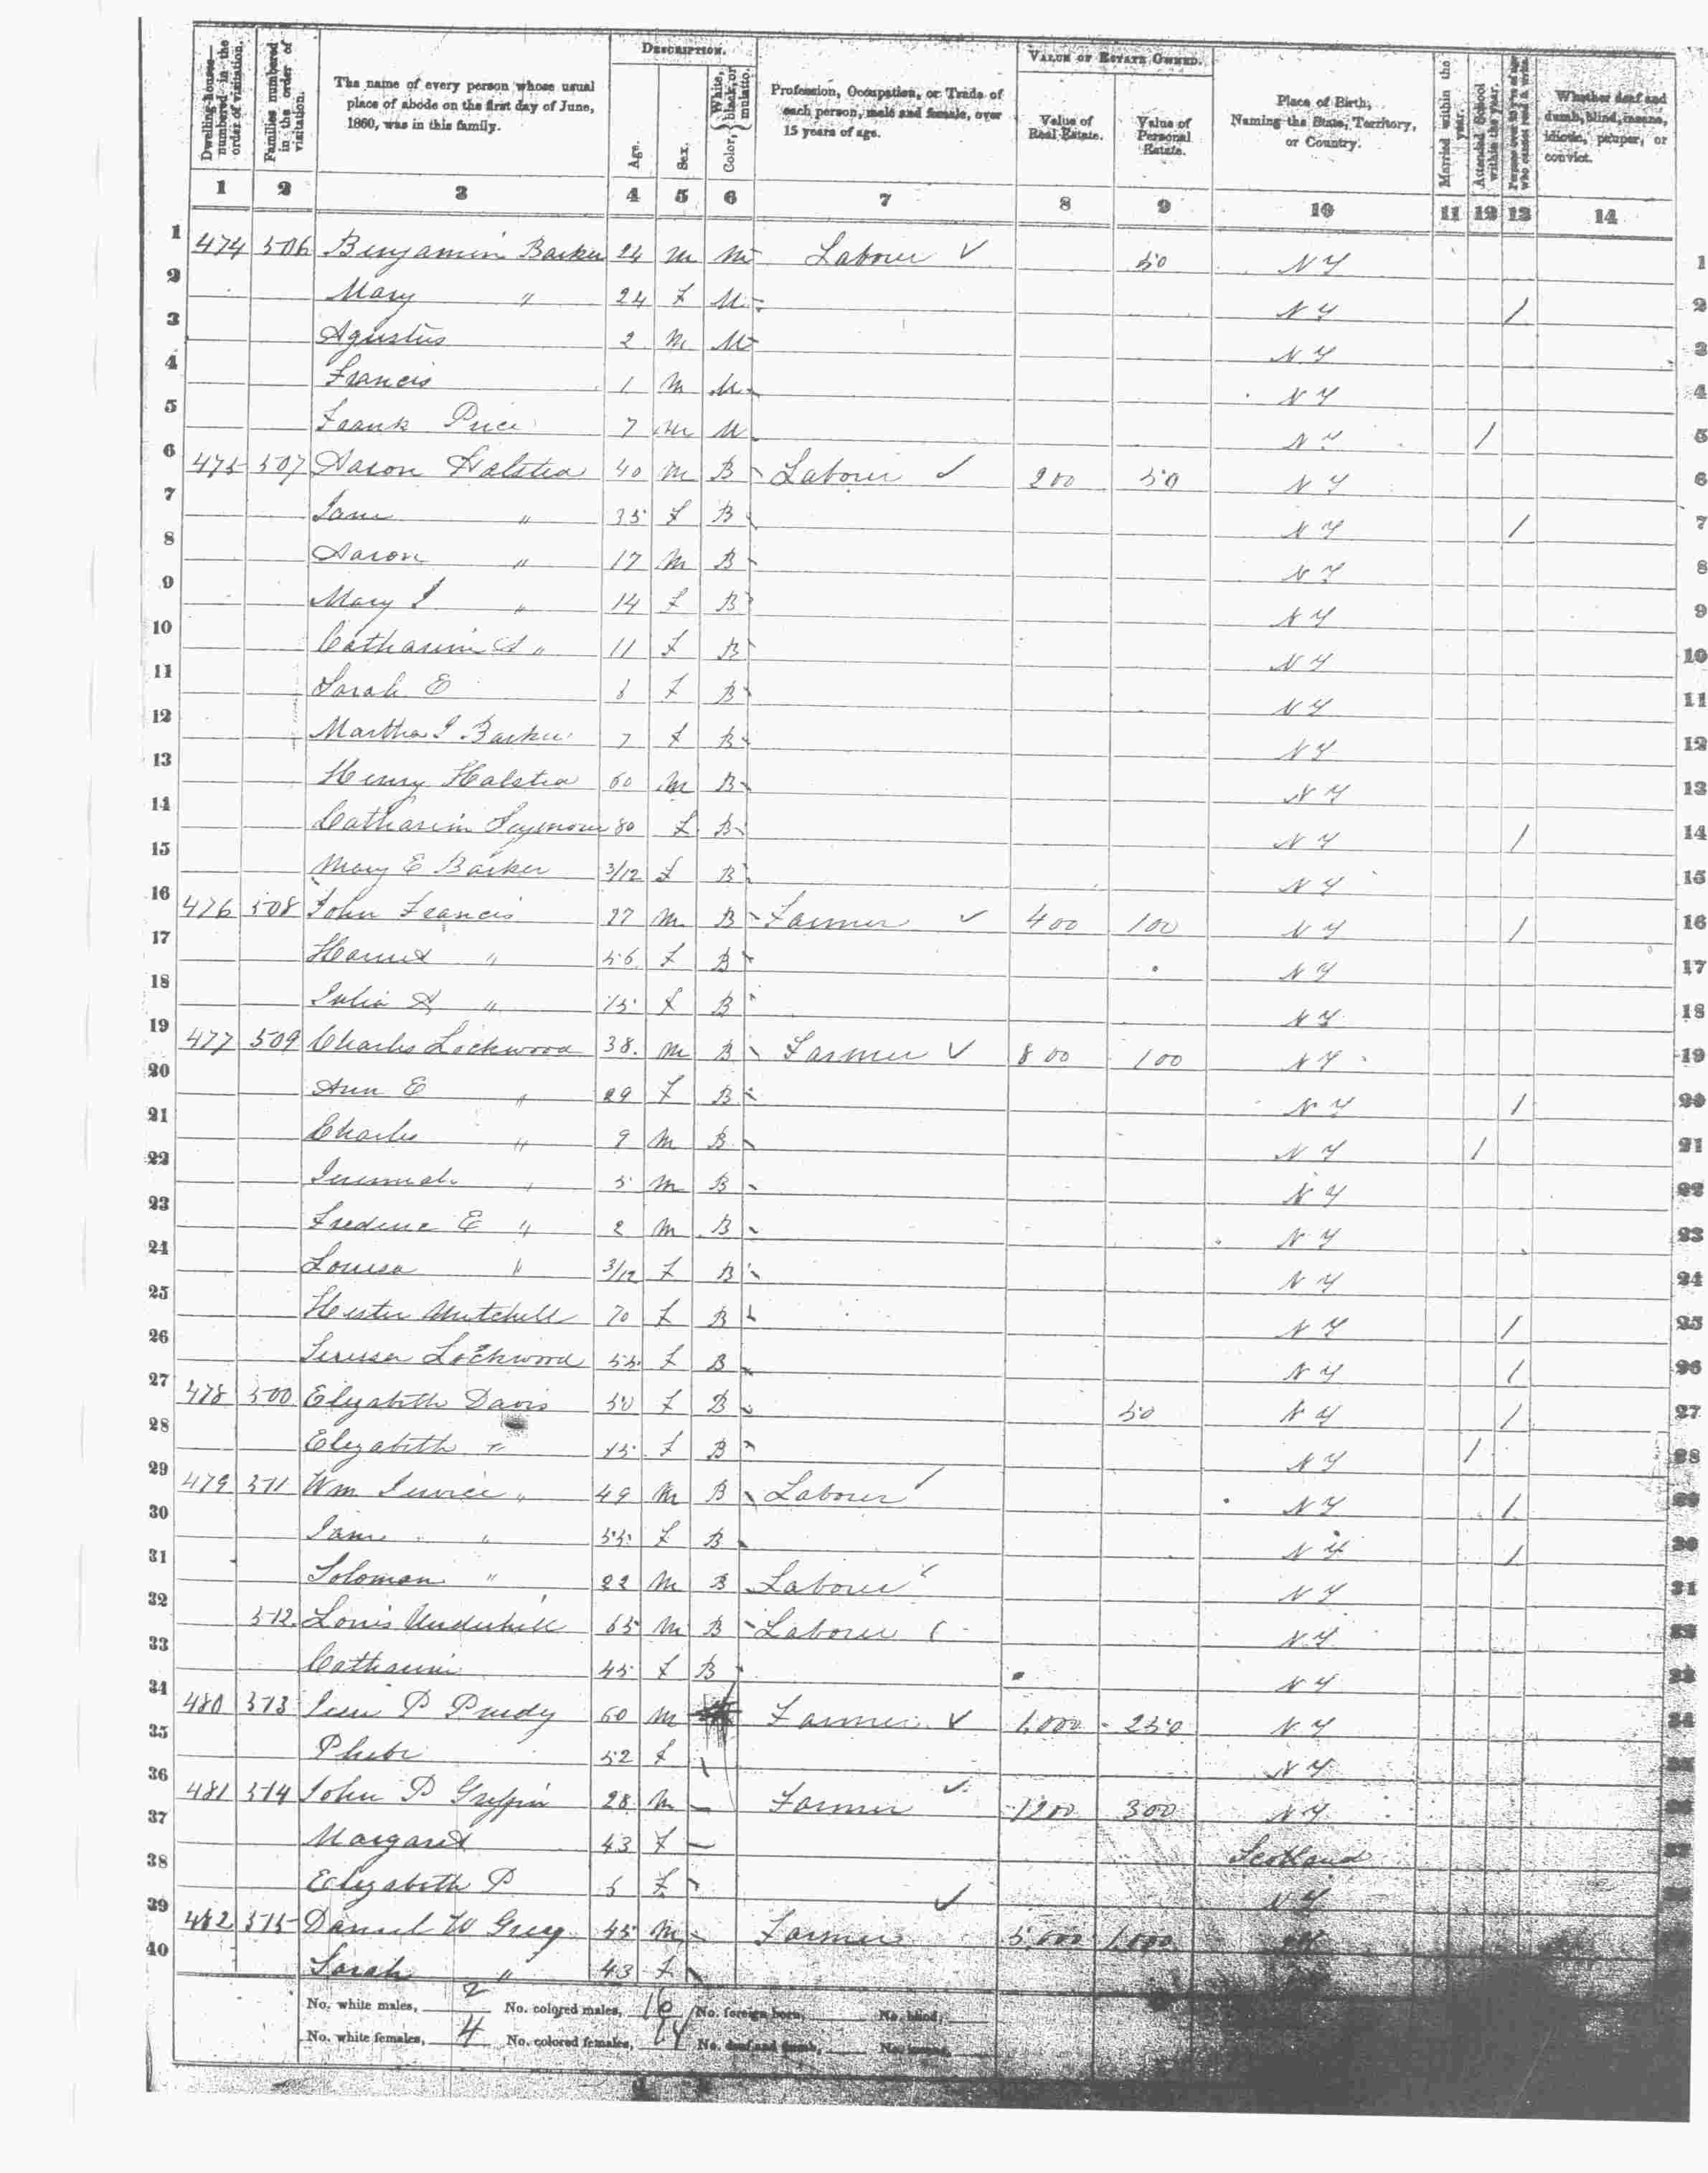 DESCRIPTION.
VALUE OF ESTATE OWNED.
Dwelling-houses—numbered in the order of visitation.
Families numbered in the order of visitation.
The name of every person whose usual place of abode on the first day of June, 1860, was in this family.
Age.
Sex.
Color, { White, black, or mulatto.
Profession, Occupation, or Trade of each person, male and female, over 15 years of age.
Value of Real Estate.
Value of Personal Estate.
Place of Birth, Naming the State, Territory, or Country.
Married within the year.
Attended School within the year.
Whether deaf and dumb, blind, insane, idiotic, pauper, or convict.
1 2 3 4 5 6 7 8 9 10 11 12 13 14
1 474 506 Benjamin Barker 24 M M Labourer ✓ 50 N Y 1
2 Mary " 24 F M N Y / 2
3 Agustus 2 M M N Y 3
4 Francis 1 M M N Y 4
5 Frank Price 7 M M N Y / 5
6 475 507 Aaron Halstea 40 M B Labourer ✓ 200 50 N Y 6
7 Jane " 35 F B N Y / 7
8 Aaron " 17 M B N Y 8
9 Mary J " 14 F B N Y 9
10 Catharine A " 11 F B N Y 10
11 Sarah E F B N Y 11
12 Martha J Barker 7 F B N Y 12
13 Henry Halstea 60 M B N Y 13
14 Catharine Seymour 80 F B N Y / 14
15 Mary E Barker 3/12 F B N Y 15
16 476 508 John Francis 27 M B Farmer ✓ 400 100 N Y / 16
17 Harriet " 56 F B N Y 17
18 Julia A " 15 F B N Y 18
19 477 509 Charles Lockwood 38 M B Farmer ✓ 800 100 N Y 19
20 Ann E " 29 F B N Y / 20
21 Charles " 9 M B N Y / 21
22 Jeremiah " 5 M B N Y 22
23 Frederic E " 2 M B N Y 23
24 Louisa " 3/12 F B N Y 24
25 Hester Mitchell 70 F B N Y / 25
26 Teressa Lockwood 55 F B N Y / 26
27 478 500 Elizabeth Davis 50 F B 50 N Y / 27
28 Elizabeth " 15 F B N Y / 28
29 479 511 Wm " 49 M B Labourer N Y / 29
30 Jane " 55 F B N Y / 30
31 Soloman " 22 M B Labourer N Y 31
32 512 Louis Underhill 65 M B Labourer N Y 32
33 Catharine 45 F B N Y 33
34 480 513 P Purdy 60 M Farmer ✓ 1,000 250 N Y 34
35 Phebe 52 F N Y
36 481 514 John P Griffin 28 M Farmer ✓ 1200 300 N Y
37 Margaret 43 F Scotland
38 Elizabeth P 5 F ✓ N Y
39 482 515 Daniel W Grey 45 M Farmer 5,000 1,000
40 Sarah " 43 F
No. white males, 2 No. colored males, 16 No. foreign born, No. blind,
No. white females, 4 No. colored females, No. deaf and dumb, No. insane,